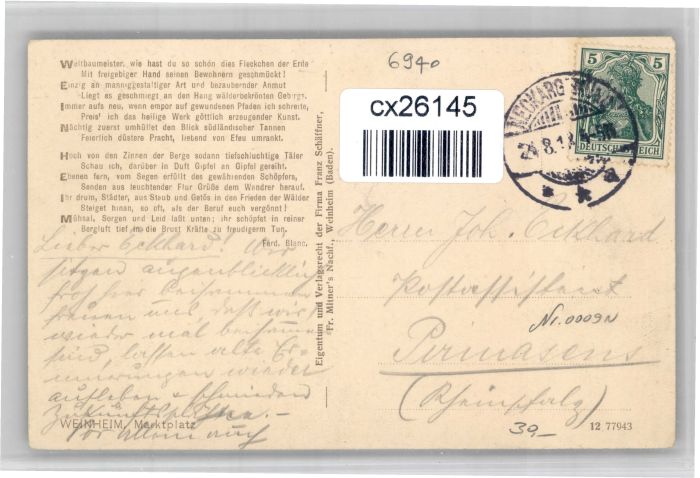 Weltbaumeister, wie hast du so schön dies Fleckchen der Erde
Mit freigebiger Hand seinen Bewohnern geschmückt!
Einzig an manniggestaltiger Art und bezaubernder Anmut
Liegt es geschmiegt an den Hang wälderbekrönten Gebirgs.
Immer aufs neu, wenn empor auf gewundenen Pfaden ich schreite,
Preis' ich das heilige Werk göttlich erzeugender Kunst.
Nächtig zuerst umhüllet den Blick südländischer Tannen
Feierlich düstere Pracht, liebend von Efeu umrankt.
Hoch von den Zinnen der Berge sodann tiefschluchtige Täler
Schau ich, darüber in Duft Gipfel an Gipfel gereiht.
Ebenen fern, vom Segen erfüllt des gewährenden Schöpfers,
Senden aus leuchtender Flur Grüße dem Wandrer herauf.
Ihr drum, Städter, aus Staub und Getös in den Frieden der Wälder
Steiget hinan, so oft, als der Beruf euch vergönnt!
Mühsal, Sorgen und Leid laßt unten; ihr schöpfet in reiner
Bergluft tief in die Brust Kräfte zu freudigem Tun.
Ferd. Blanc.
Lieber Eckhard! Wir
sitzen augenblicklich
froh hier beisammen
freuen uns, daß wir
wieder mal beisammen
sind, lassen alte Er-
innerungen wieder
aufleben + schmieden
Zukunftspläne. –
Vor allem auch
WEINHEIM, Marktplatz
Eigentum und Verlagsrecht der Firma Franz Schäffner,
Fr. Mitner's Nachf., Weinheim (Baden).
6940
cx26145
5 5
DEUTSCHES REICH
Herrn Joh. Eckhard
Postassistent
Nr. 0009N
Pirmasens
(Rheinpfalz)
39,–
12 77943